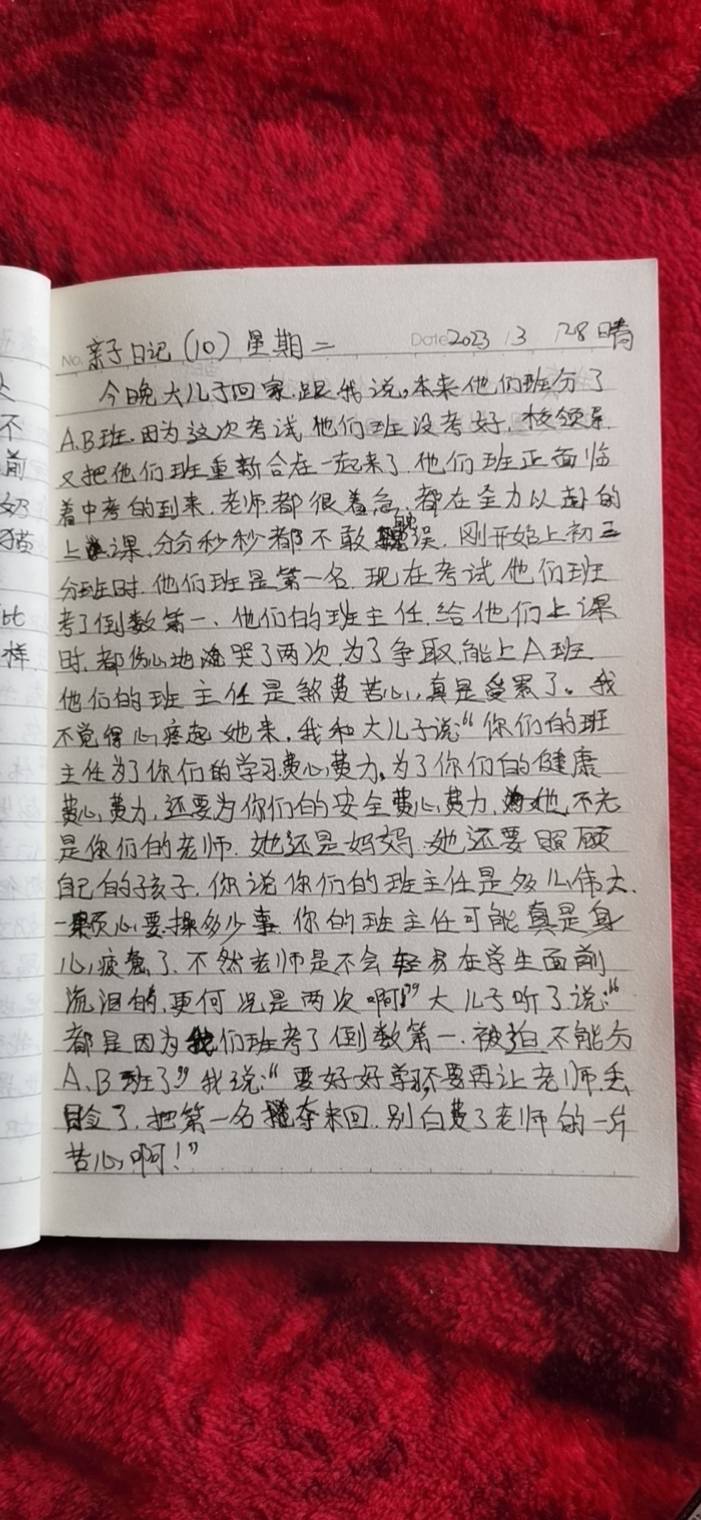 No. 亲子日记（10）星期二 Date 2023 /3 /28 晴
今晚大儿子回家跟我说。本来他们班分了
A、B班.因为这次考试他们班没考好，校领导
又把他们班重新合在一起来了.他们班正面临
着中考的到来.老师都很着急.都在全力以赴的
上课.分分秒秒都不敢耽误.刚开始上初三
分班时.他们班是第一名.现在考试他们班
考了倒数第一、他们的班主任.给他们上课
时.都伤心地哭了两次.为了争取能上A班.
他们的班主任是煞费苦心,真是受累了。我
不觉得心疼起她来.我和大儿子说“你们的班
主任为了你们的学习费心费力。为了你们的健康
费心费力,还要为你们的安全费心费力,她不光
是你们的老师.她还是妈妈.她还要照顾
自己的孩子.你说你们的班主任是多么伟大.
一颗心要操多少事.你的班主任可能真是身
心疲惫了.不然老师是不会轻易在学生面前
流泪的,更何况是两次啊!”大儿子听了说:“
都是因为我们班考了倒数第一.被迫不能分
A、B班了”我说:“要好好学习,不要再让老师丢
脸了.把第一名夺来回.别白费了老师的一片
苦心啊!”
不
前
奶
猫
比
样